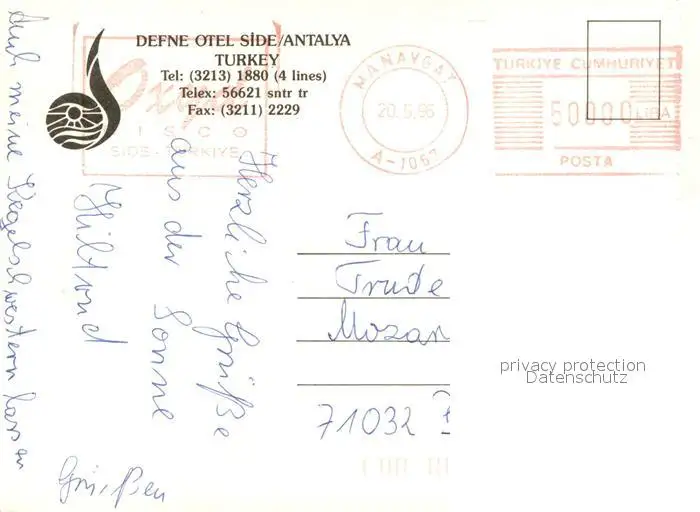 DEFNE OTEL SİDE/ANTALYA
TURKEY
Tel: (3213) 1880 (4 lines)
Telex: 56621 sntr tr
Fax: (3211) 2229
MANAVGAT
20.5.96
A-1067
TÜRKİYE CUMHURİYETİ
50000 LİRA
POSTA
DISCO
SIDE-TÜRKİYE
Herzliche Grüße
aus der Sonne
Hiltrud
Auch meine Kegelschwestern lassen
Grüßen
Frau
Trude
Mozar
71032
privacy protection
Datenschutz